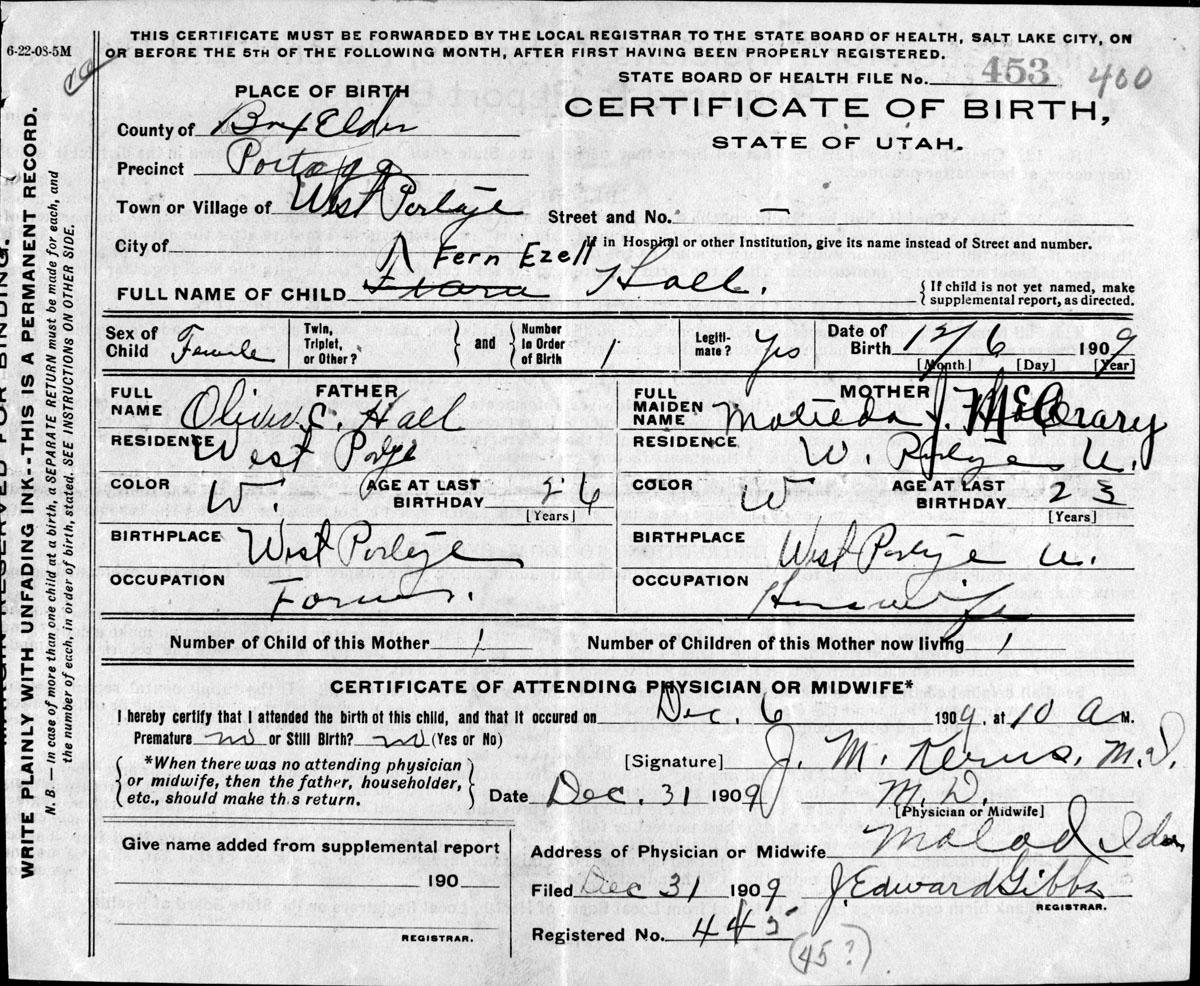 6-22-08-5M
THIS CERTIFICATE MUST BE FORWARDED BY THE LOCAL REGISTRAR TO THE STATE BOARD OF HEALTH, SALT LAKE CITY, ON
OR BEFORE THE 5TH OF THE FOLLOWING MONTH, AFTER FIRST HAVING BEEN PROPERLY REGISTERED.
STATE BOARD OF HEALTH FILE No. 453 400
CERTIFICATE OF BIRTH,
STATE OF UTAH.
PLACE OF BIRTH
County of Box Elder
Precinct Portage
Town or Village of West Portage
Street and No. —
City of
If in Hospital or other Institution, give its name instead of Street and number.
Fern Ezell
FULL NAME OF CHILD Hall.
{ If child is not yet named, make
supplemental report, as directed.
Sex of Child Female
Twin, Triplet, or Other?
} and { Number in Order of Birth 1
Legiti-mate? Yes
Date of Birth 12/6 1909
[Month] [Day] [Year]
FATHER
FULL NAME Oliver C. Hall
RESIDENCE West Portage
COLOR W. AGE AT LAST BIRTHDAY 26
[Years]
BIRTHPLACE West Portage
OCCUPATION Farmer.
MOTHER
FULL MAIDEN NAME Matilda J. McCrary
RESIDENCE W. Portage U.
COLOR W AGE AT LAST BIRTHDAY 23
[Years]
BIRTHPLACE West Portage U.
OCCUPATION Housewife
Number of Child of this Mother 1
Number of Children of this Mother now living 1
CERTIFICATE OF ATTENDING PHYSICIAN OR MIDWIFE*
I hereby certify that I attended the birth of this child, and that it occured on Dec. 6 1909, at 10 a M.
Premature no or Still Birth? no (Yes or No)
{ *When there was no attending physician
or midwife, then the father, householder,
etc., should make this return. }
[Signature] J. M. Kerns, M.D.
Date Dec. 31 1909 M.D.
[Physician or Midwife]
Address of Physician or Midwife Malad Ida
Filed Dec 31 1909 J. Edward Gibbs
REGISTRAR.
Registered No. 445
(45?)
Give name added from supplemental report
190
REGISTRAR.
WRITE PLAINLY WITH UNFADING INK--THIS IS A PERMANENT RECORD.
N. B. — In case of more than one child at a birth, a SEPARATE RETURN must be made for each, and
the number of each in order of birth, stated. SEE INSTRUCTIONS ON OTHER SIDE.